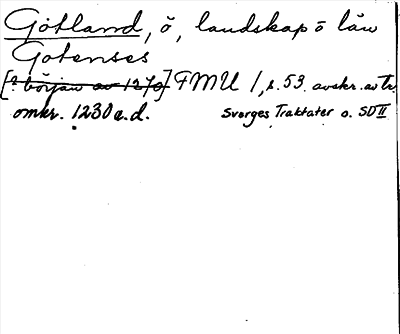 Gotland, ö, landskap o län
Gotenses
[? början av 1270] FMU 1, s. 53. avskr. av Tr.
omkr. 1230 e.d. Sverges Traktater o. SD II